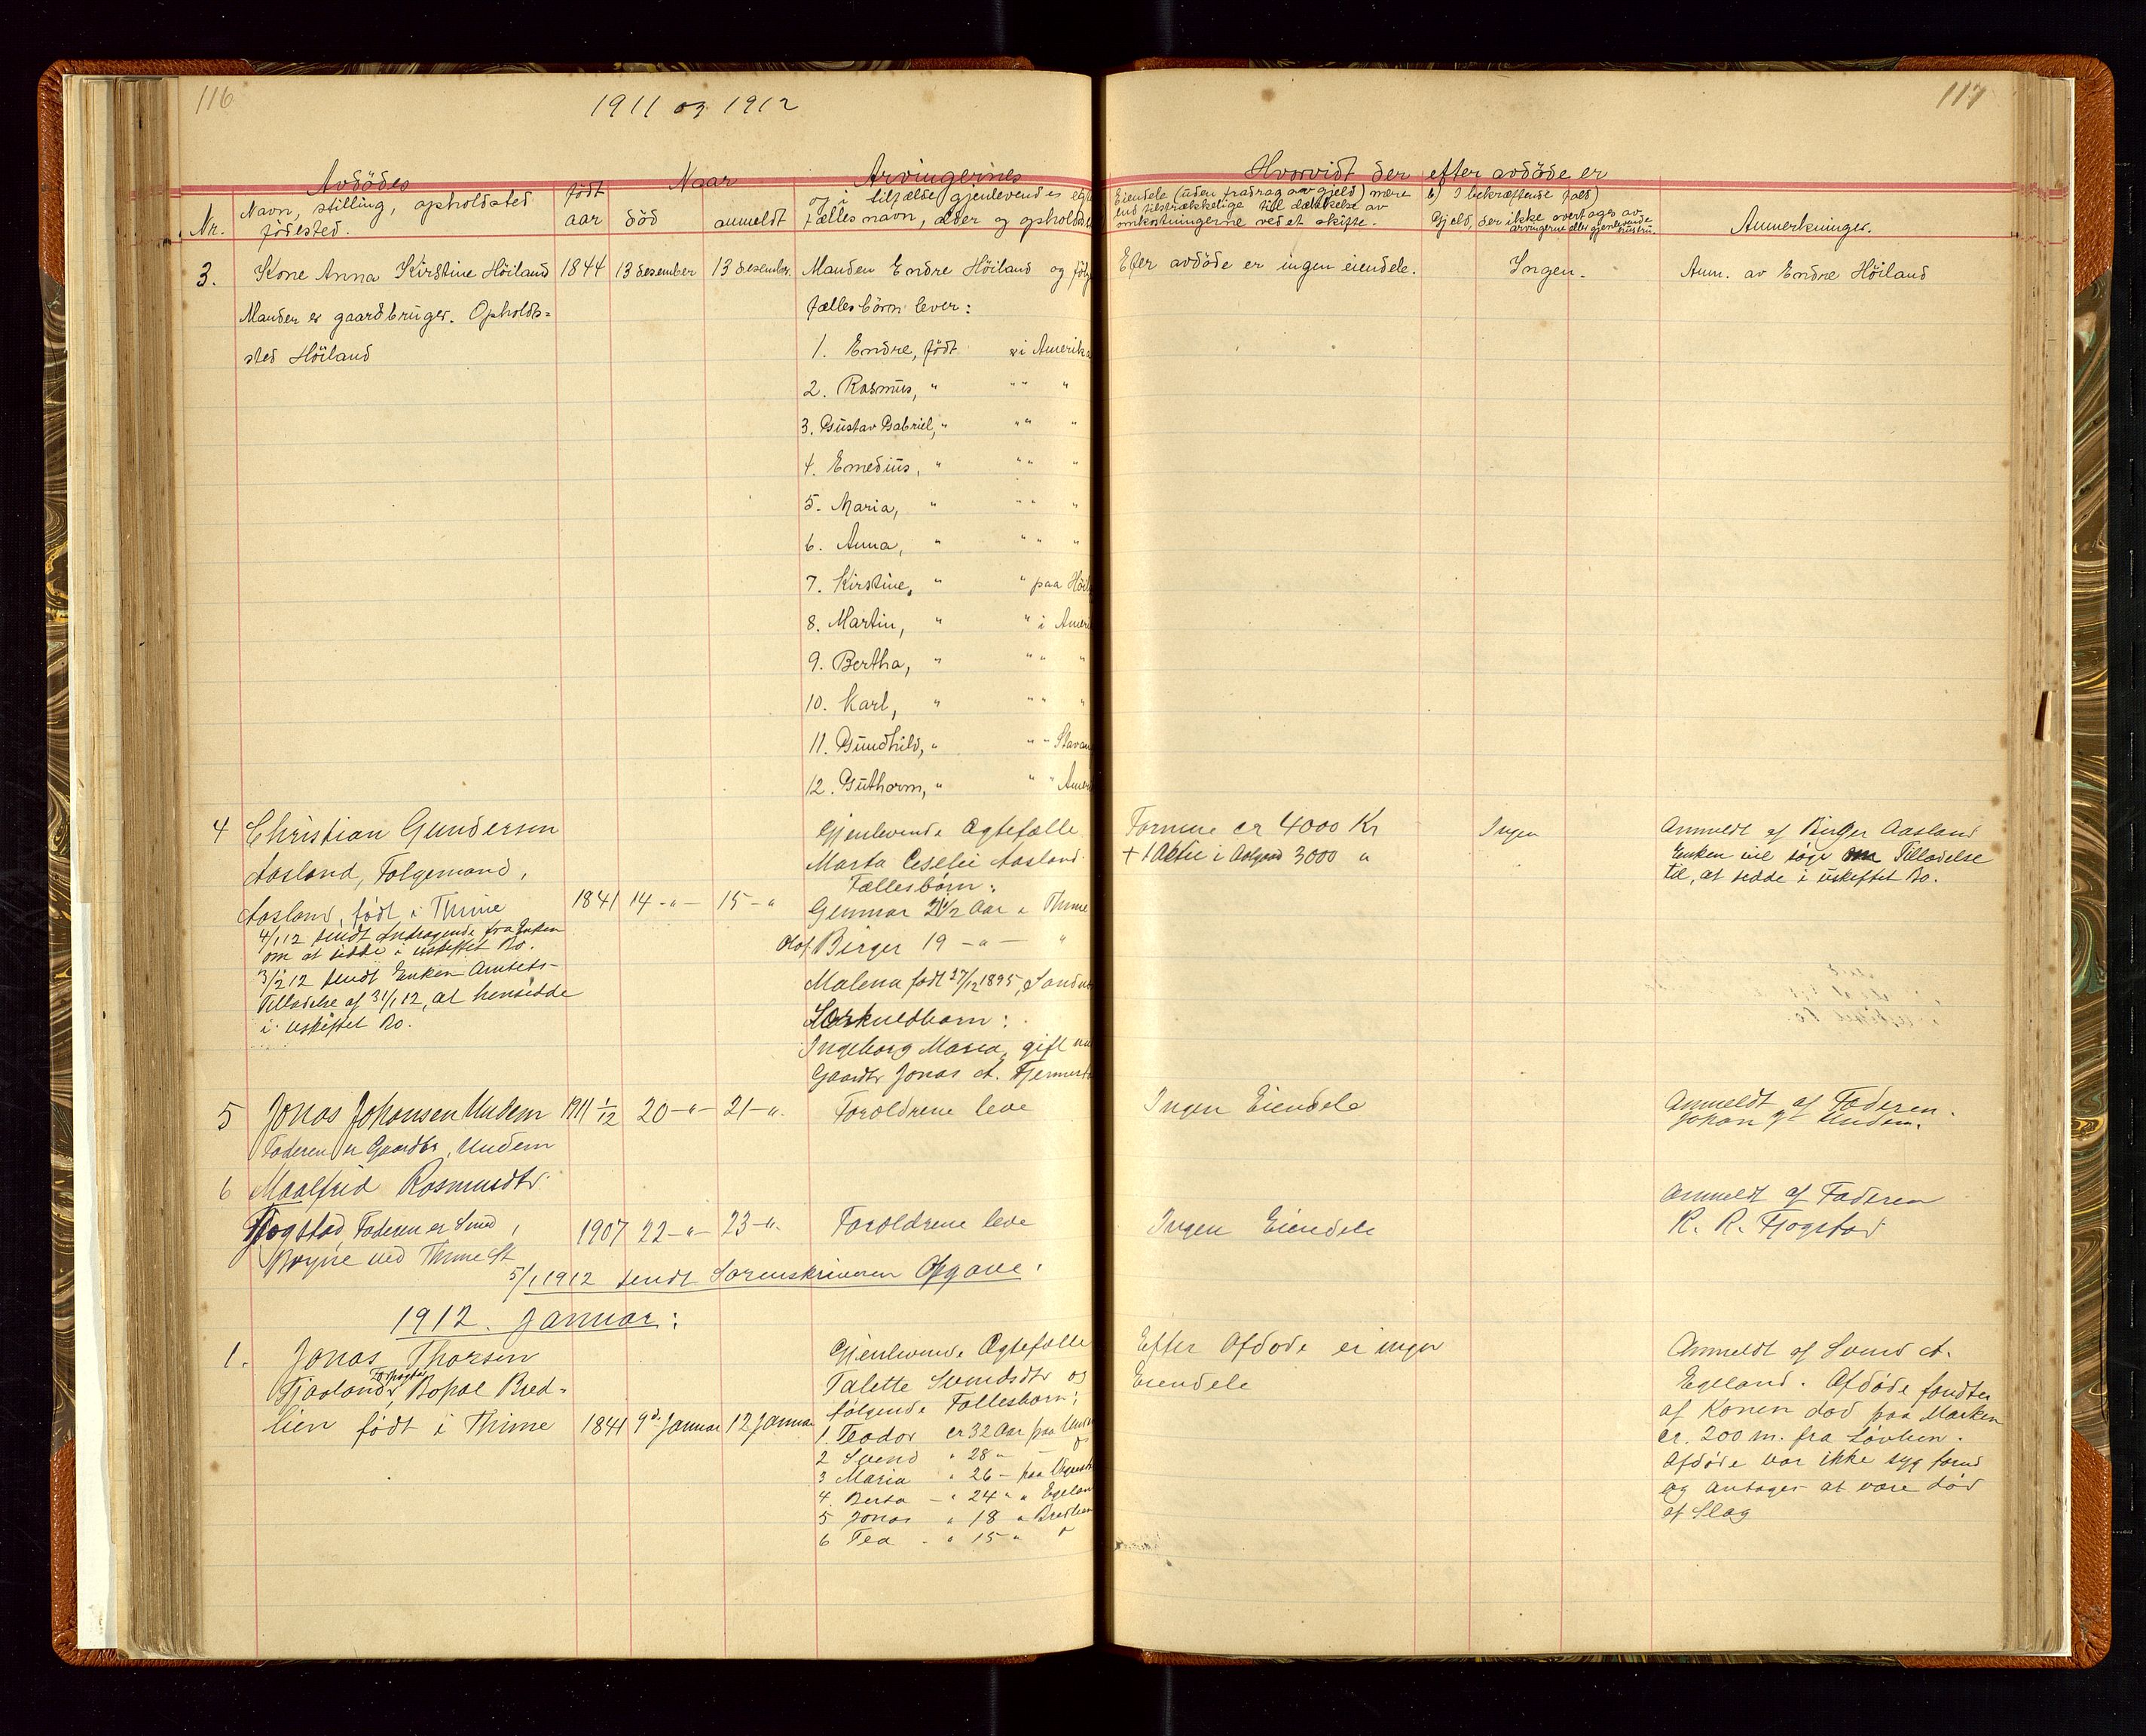 116
1911 og 1912
Avdödes
Nr.
Navn, stilling, opholdsted
födested.
født
aar
Naar
död
anmeldt
Arvingernes
og i tilfælde gjenlevendes
fælles navn, alder og
3.
Kone Anna Kirstine Höiland
1844
13 desember
13 desember
Manden er gaardbruger. Opholds-
sted Höiland
Manden Endre Höiland og
fælles börn lever:
1. Endre, født " i Amerika
2. Rasmus, " " " "
3. Gustav Gabriel, " " " "
4. Emedius, " " " "
5. Maria, " " " "
6. Anna, " " " "
7. Kirstine, " " paa
8. Martin, " " i
9. Bertha, " " " "
10. Karl, " " " "
11. Gundhild, " " "
12. Guthorm, " " "
4
Christian Gundersen
Aasland, Folgemand,
Aasland, født i Thime
1841
14 - " -
15 - "
4/1 12 sendt Andragende fra Enken
om at sidde i uskiftet Bo.
3/2 12 sendt Enken Amtets-
Tilladelse af 31/1 12, at hensidde
i uskiftet Bo.
Gjenlevende Ægtefælle
Marta Aasland.
Fællesbörn:
Gunnar 21 1/2 Aar " Thime
Olaf Birger 19 - " - "
Malena født 27/12 1895,
Særkuldbarn:
Ingeborg Maria, gift
Gaardbr Jonas A.
5
Jonas Johansen Undem
1911 1/12
20 - " -
21 - ".
Foroldrene leve
Faderen er Gaardbr, Undem
6
Maalfrid Rasmusdtr.
Fjogstad, Faderen er Smed,
Bryne ved Thime St
1907
22 - " -
23 - ".
Foroldrene leve
5/1 1912 sendt Sorenskriveren Opgave.
1912. Januar:
1.
Jonas Thorsen
Fjaaland, Bopæl Bred-
lien født i Thime
1841
9de Januar
12 Januar
Gjenlevende Ægtefælle
Talette Svendsdtr og
følgende Fællesbarn:
1. Teodor er 32 Aar paa
2 Svend " 28 "
3 Maria " 26 - paa
4. Berta - " 24 " "
5 Jonas " 18 "
6 Tea - " 15 " "
117
Hvorvidt der efter avdöde er
Eiendele (uden fradrag av gjeld) mere
end tilstrækkelige til dækkelse av
omkostningerne ved et skifte.
b) I bekræftende fald)
Gjeld, der ikke overtages av
arvingerne eller gjenlevende
hustru.
Anmerkninger.
Efter avdöde er ingen eiendele.
Ingen.
Anm. av Endre Höiland
Formue ca 4000 Kr
+ 1 Aktie i 3000 "
Ingen
Anmeldt af Birger Aasland
Enken vil søge om Tilladelse
til, at sidde i uskiftet Bo.
Ingen Eiendele
Anmeldt af Faderen.
Johan Undem.
Ingen Eiendele
Anmeldt af Faderen
R. R. Fjogstad
Efter Afdøde er ingen
Eiendele
Anmeldt af Svend A.
Egeland. Afdøde fandtes
af Konen død paa Marken
ca. 200 m. fra Løvhen.
Afdøde var ikke syg forud
og antages at være død
af Slag